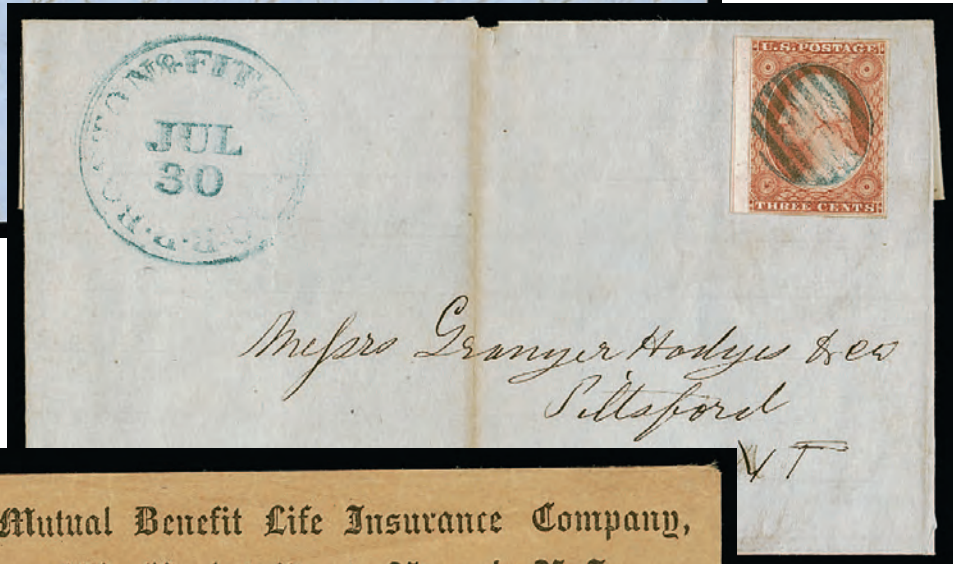 BOSTON & FITC
R.R.
JUL
30
U.S. POSTAGE
THREE CENTS
Messrs Granger Hodges & co
Pittsford
VT
Mutual Benefit Life Insurance Company,